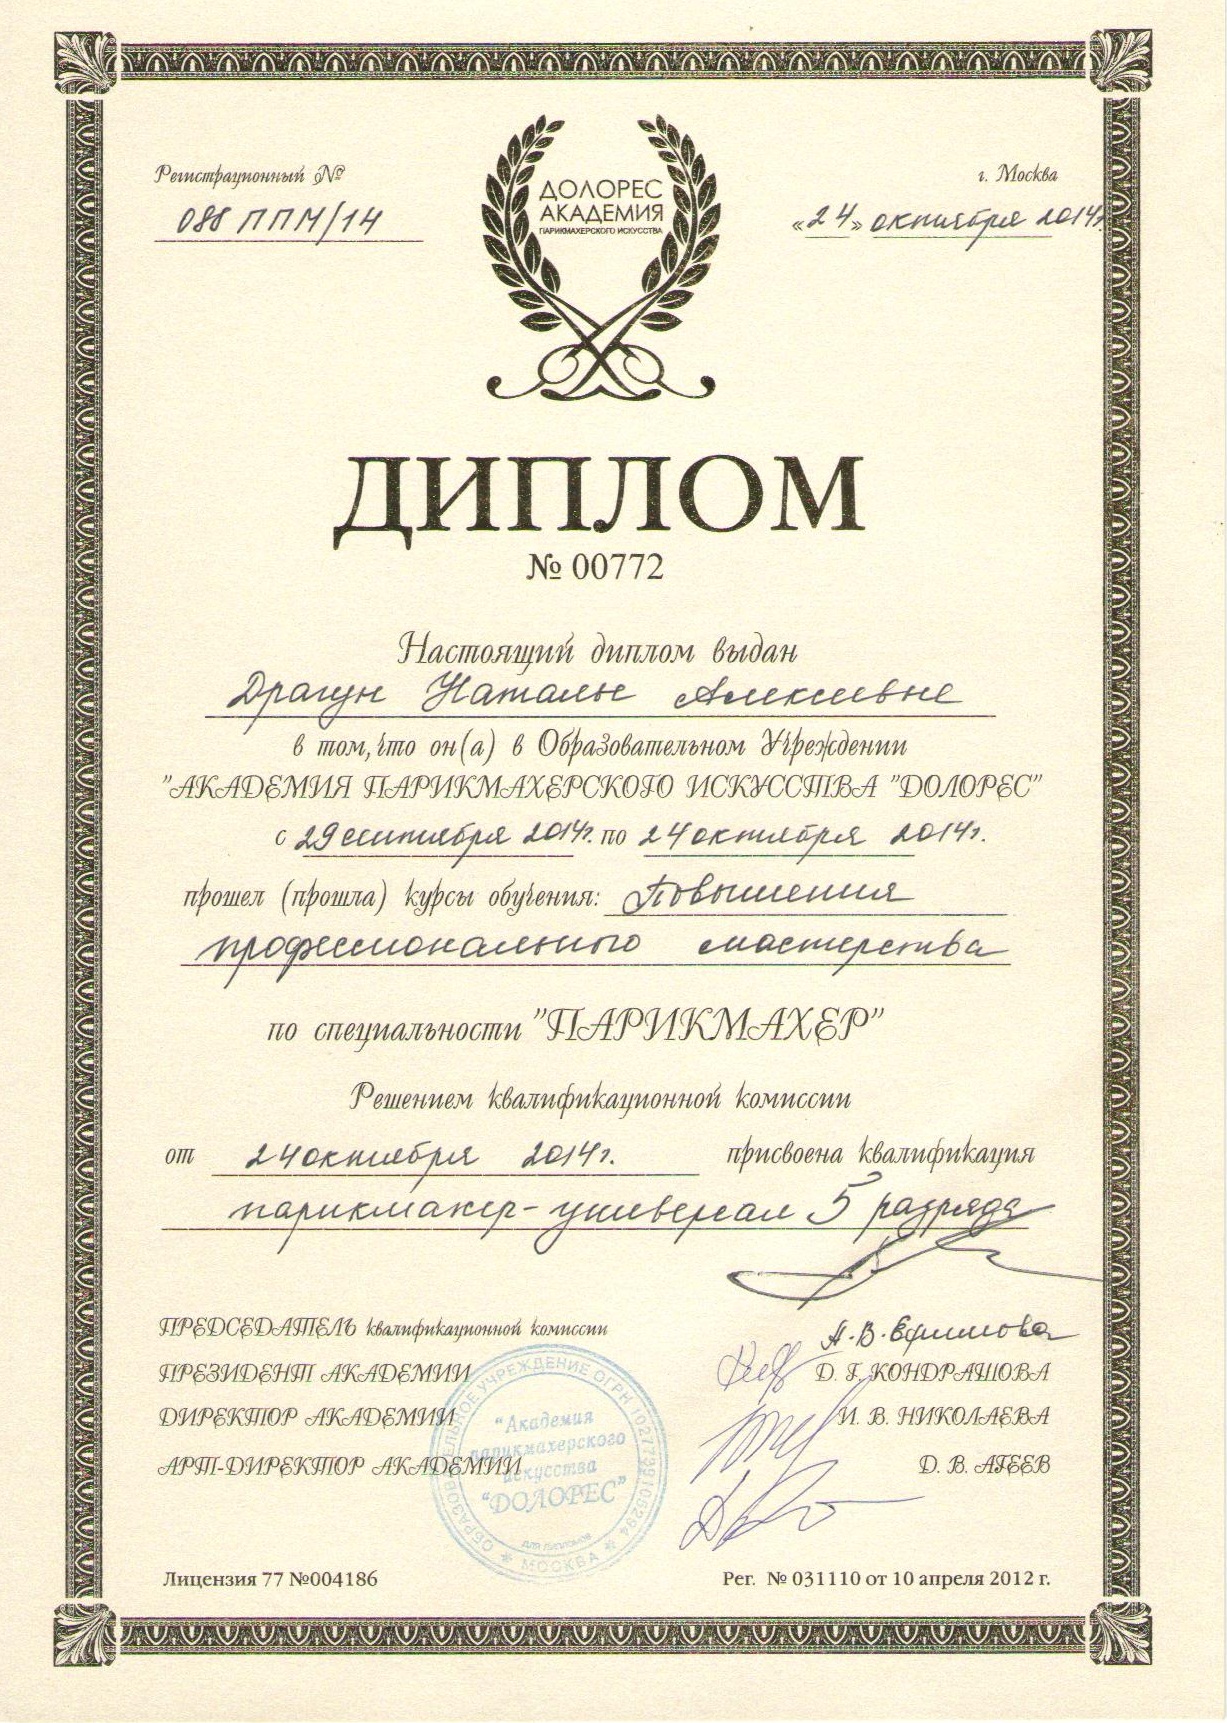 Регистрационный №
088 ППМ/14
ДОЛОРЕС
АКАДЕМИЯ
ПАРИКМАХЕРСКОГО ИСКУССТВА
г. Москва
«24» октября 2014г.
ДИПЛОМ
№ 00772
Настоящий диплом выдан
Драгун Наталье Алексеевне
в том, что он(а) в Образовательном Учреждении
"АКАДЕМИЯ ПАРИКМАХЕРСКОГО ИСКУССТВА "ДОЛОРЕС"
с 29 сентября 2014г. по 24 октября 2014г.
прошел (прошла) курсы обучения: Повышения
профессионального мастерства
по специальности "ПАРИКМАХЕР"
Решением квалификационной комиссии
от 24 октября 2014г. присвоена квалификация
парикмахер-универсал 5 разряда
ПРЕДСЕДАТЕЛЬ квалификационной комиссии А.В. Ефимова
ПРЕЗИДЕНТ АКАДЕМИИ Д. Г. КОНДРАШОВА
ДИРЕКТОР АКАДЕМИИ И. В. НИКОЛАЕВА
АРТ-ДИРЕКТОР АКАДЕМИИ Д. В. АГЕЕВ
ОБРАЗОВАТЕЛЬНОЕ УЧРЕЖДЕНИЕ ОГРН
"Академия
парикмахерского
искусства
"ДОЛОРЕС"
для дипломов
* МОСКВА *
Лицензия 77 №004186
Рег. № 031110 от 10 апреля 2012 г.